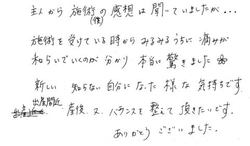 主人から施術の感想は聞いていましたが...
(後)
施術を受けている時からみるみるうちに痛みが
和らいでいくのが分かり 本当に驚きました
新しい 知らない自分になった様な気持ちです。
出産間近
産後、又、バランスを整えて頂きたいです。
ありがとうございました。